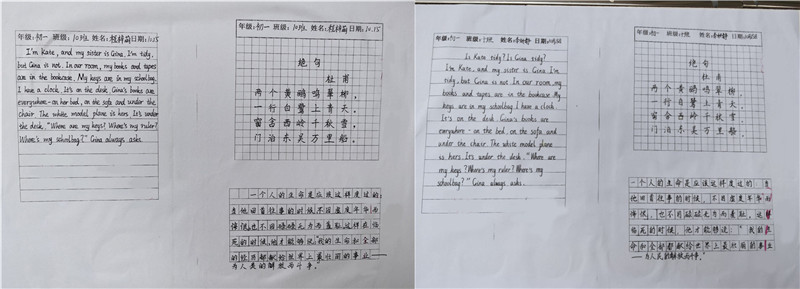 年级:初一 班级:10班 姓名: 日期:10.15
I'm Kate, and my sister is Gina. I'm tidy,
but Gina is not. In our room, my books and tapes
are in the bookcase. My keys are in my schoolbag.
I have a clock. It's on the desk. Gina's books are
everywhere-on her bed, on the sofa and under the
chair. The white model plane is hers. It's under
the desk. "Where are my keys? Where's my ruler?
Where's my schoolbag?" Gina always asks.
年级:初一 班级:10班 姓名: 日期:10.15
绝句
杜甫
两个黄鹂鸣翠柳,
一行白鹭上青天。
窗含西岭千秋雪,
门泊东吴万里船。
一个人的生命是应该这样度过的:
当他回首往事的时候,不因虚度年华而
悔恨,也不因碌碌无为而羞耻,这样在临
死的时候,他才能够说:"我的生命和全部
的经历都献给世界上最壮丽的事业——
为人类的解放而斗争。"
年级:初一 班级:七班 姓名: 日期:
Is Kate tidy? Is Gina tidy?
I'm Kate, and my sister is Gina. I'm
tidy, but Gina is not. In our room, my
books and tapes are in the bookcase. My
keys are in my schoolbag. I have a clock.
It's on the desk. Gina's books are
everywhere - on the bed, on the sofa and
under the chair. The white model plane
is hers. It's under the desk. "Where are
my keys? Where's my ruler? Where's my
schoolbag?" Gina always asks.
年级:初一 班级:七班 姓名: 日期:
绝句
杜甫
两个黄鹂鸣翠柳,
一行白鹭上青天。
窗含西岭千秋雪,
门泊东吴万里船。
一个人的生命是应该这样度过的:当
他回首往事的时候,不因虚度年华而
悔恨,也不因碌碌无为而羞耻,这样
临死的时候,他才能够说:"我的生
命和全部都献给世界上最壮丽的事业
——为人民的解放而斗争。"